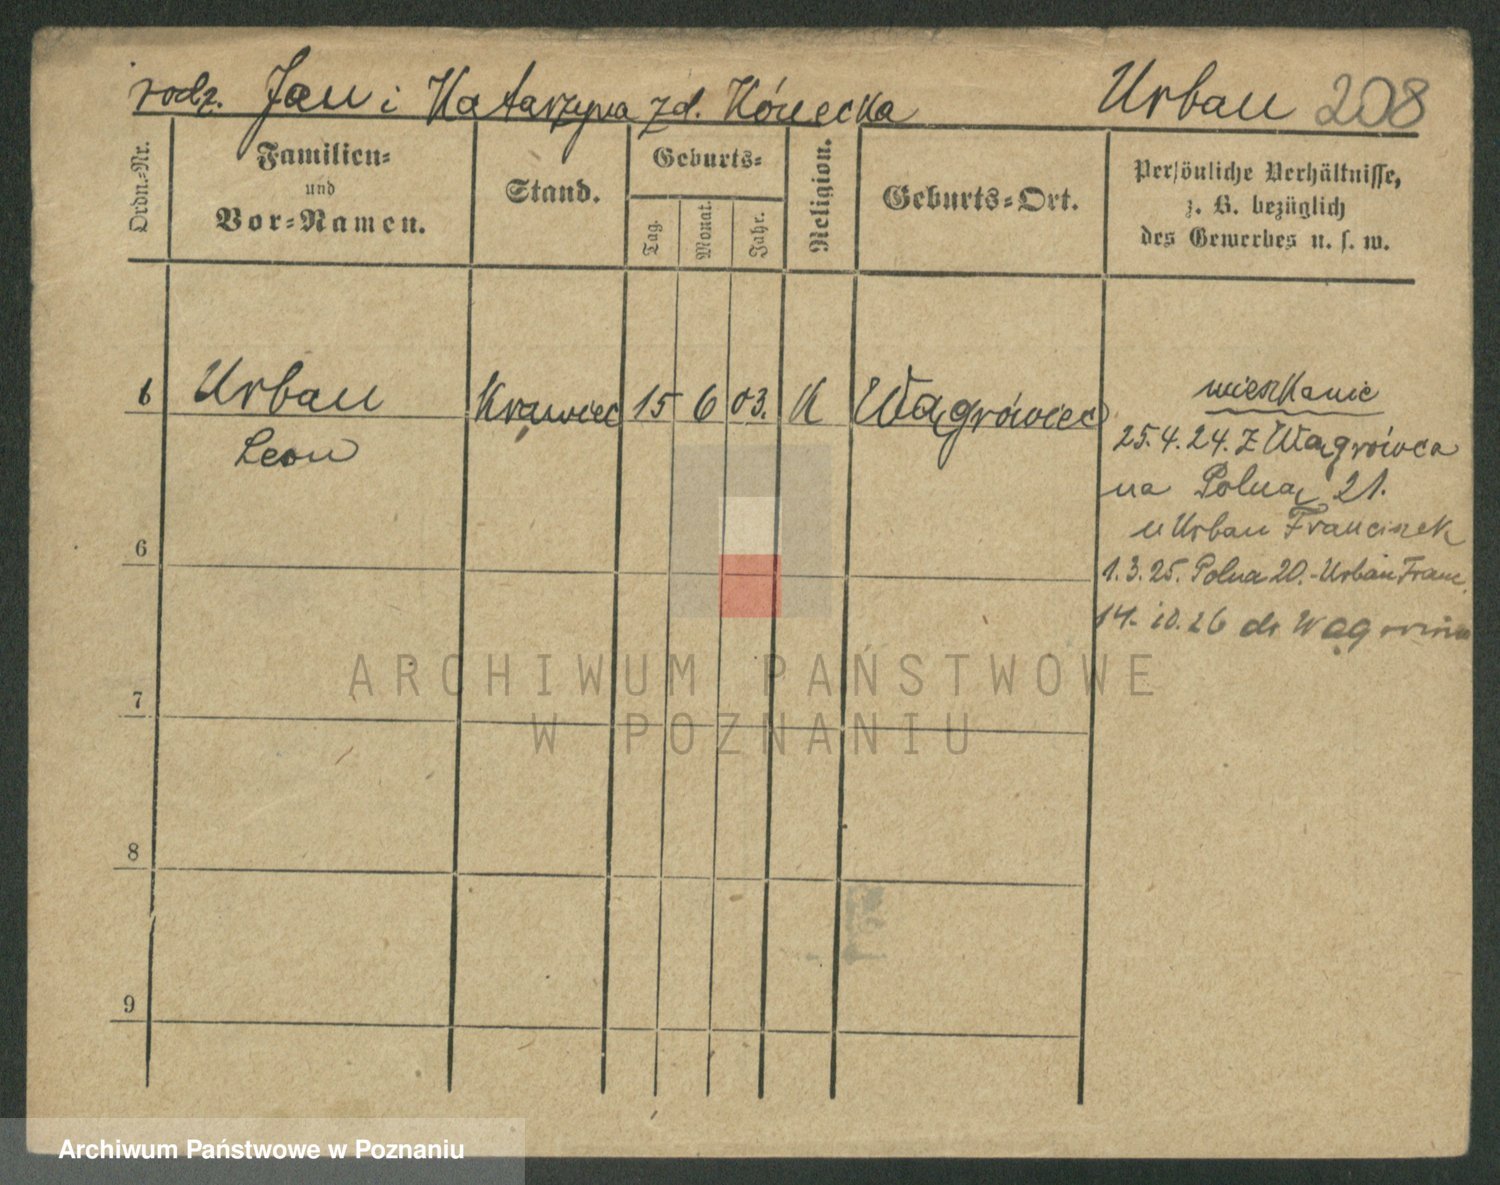 rodz. Jan i Katarzyna zd. Kónecka Urban 208
Ordn.-Nr.
Familien-
und
Vor-Namen.
Stand.
Geburts-
Tag.
Monat.
Jahr.
Religion.
Geburts-Ort.
Persönliche Verhältnisse,
z. B. bezüglich
des Gewerbes u. s. w.
Urban Krawiec 15 6 03. K Wągrówiec
Leon
mieszkanie
25.4.24. z Wągrówca
na Polną 21.
u Urban Franciszek
1.3.25. Polna 20. - Urban Franc.
14. 10. 26 do
6
7
8
9
ARCHIWUM PAŃSTWOWE
W POZNANIU
Archiwum Państwowe w Poznaniu